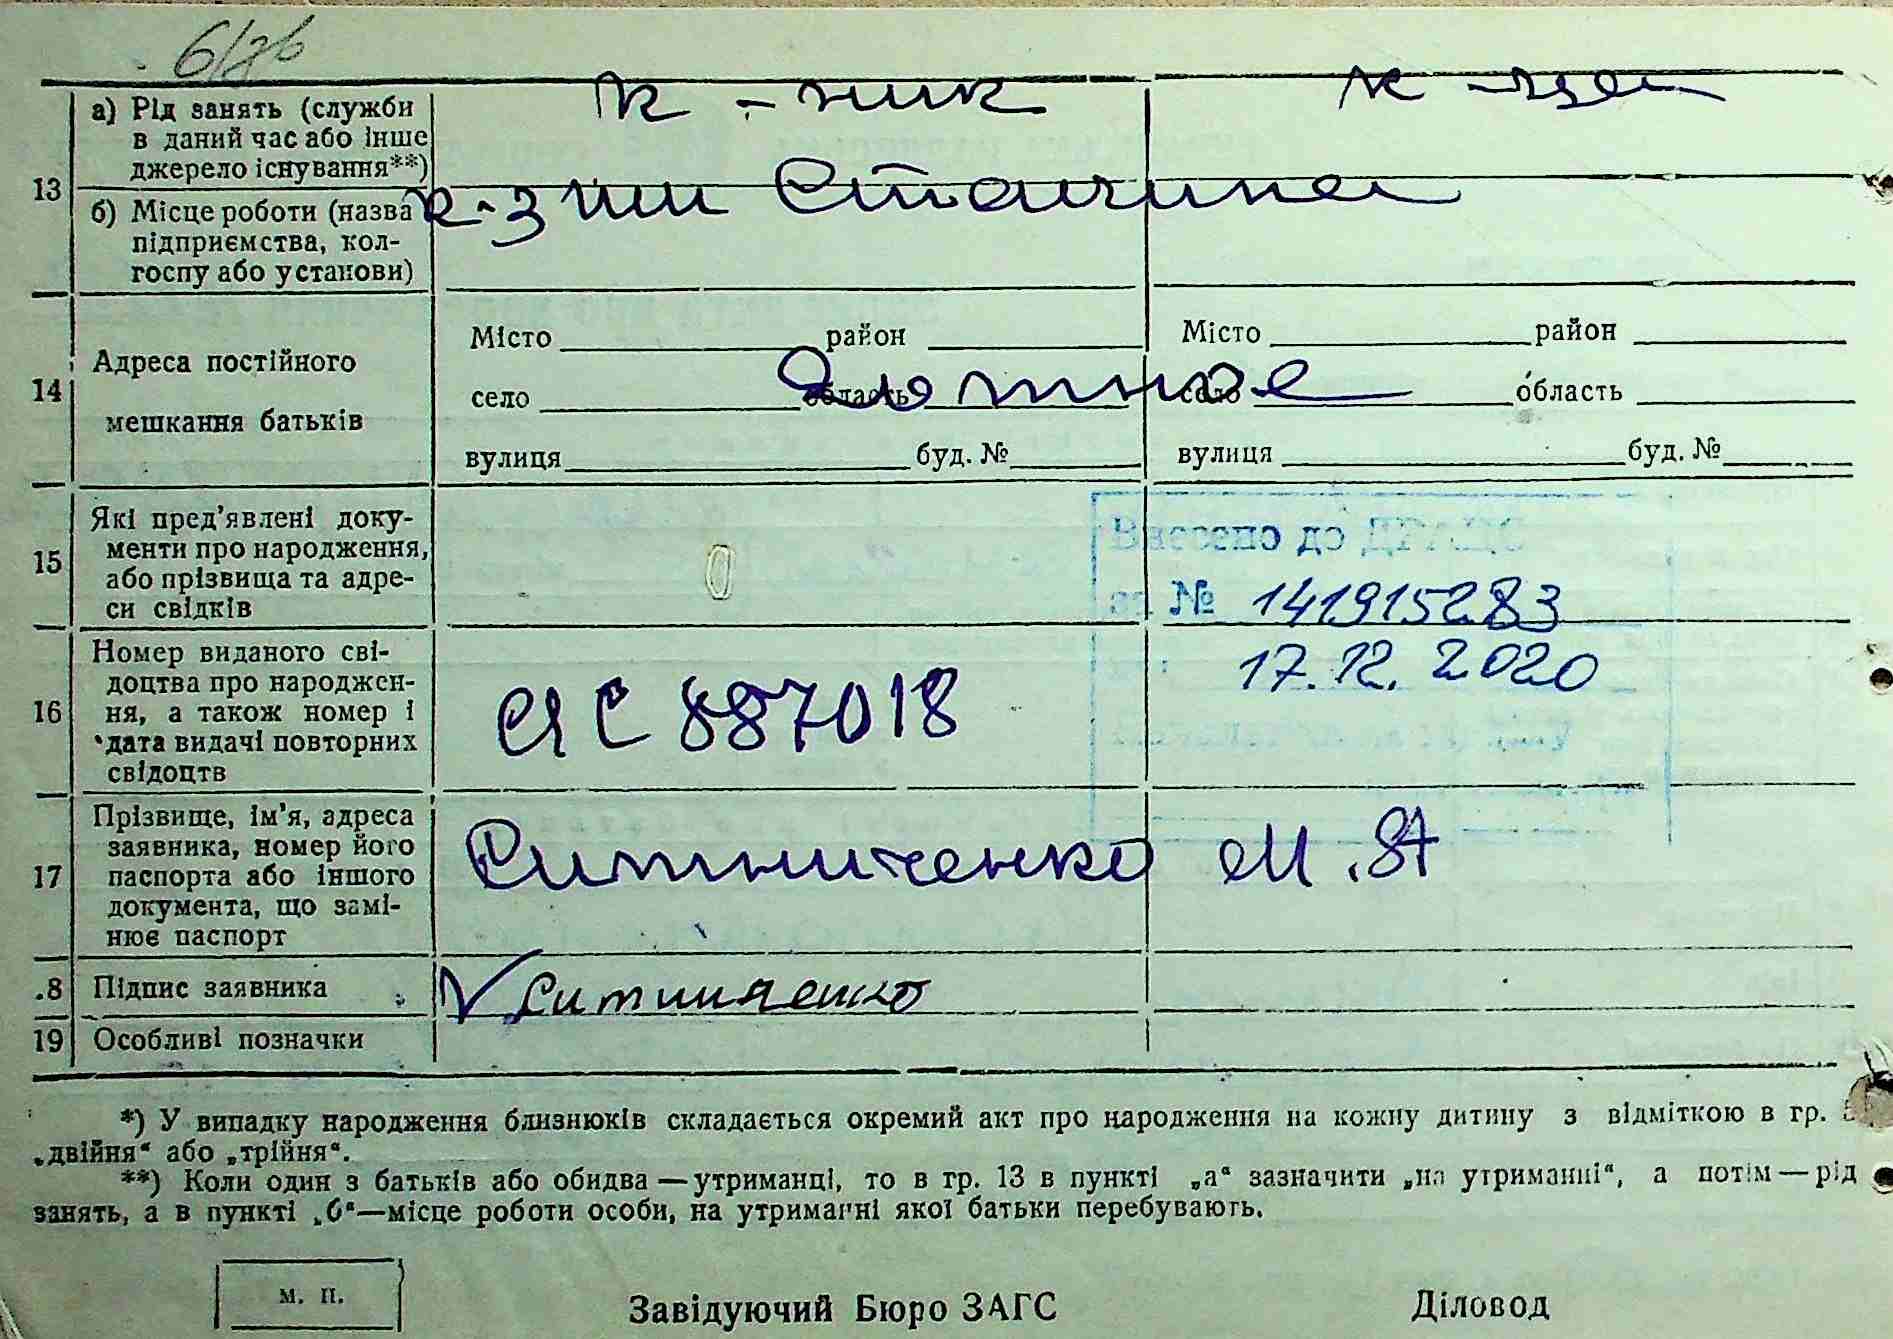 6/7b
к-ник к-ця
13 а) Рід занять (служби
в даний час або інше
джерело існування**)
к-з им Сталина
б) Місце роботи (назва
підприємства, кол-
госпу або установи)
14 Адреса постійного
мешкання батьків
Місто район Місто район
село область село область
вулиця буд. № вулиця буд. №
15 Які пред'явлені доку-
менти про народження,
або прізвища та адре-
си свідків
Внесено до ДРАЦС
за № 141915283
17.12.2020
16 Номер виданого сві-
доцтва про народжен-
ня, а також номер і
дата видачі повторних
свідоцтв
ЯС 887018
17 Прізвище, ім'я, адреса
заявника, номер його
паспорта або іншого
документа, що замі-
нює паспорт
Ситниченко М. Я
.8 Підпис заявника
Ситниченко
19 Особливі позначки
*) У випадку народження близнюків складається окремий акт про народження на кожну дитину з відміткою в гр.
„двійня“ або „трійня“.
**) Коли один з батьків або обидва — утриманці, то в гр. 13 в пункті „а“ зазначити „на утриманні“, а потім — рід
занять, а в пункті „б“ — місце роботи особи, на утриманні якої батьки перебувають.
м. п.
Завідуючий Бюро ЗАГС Діловод